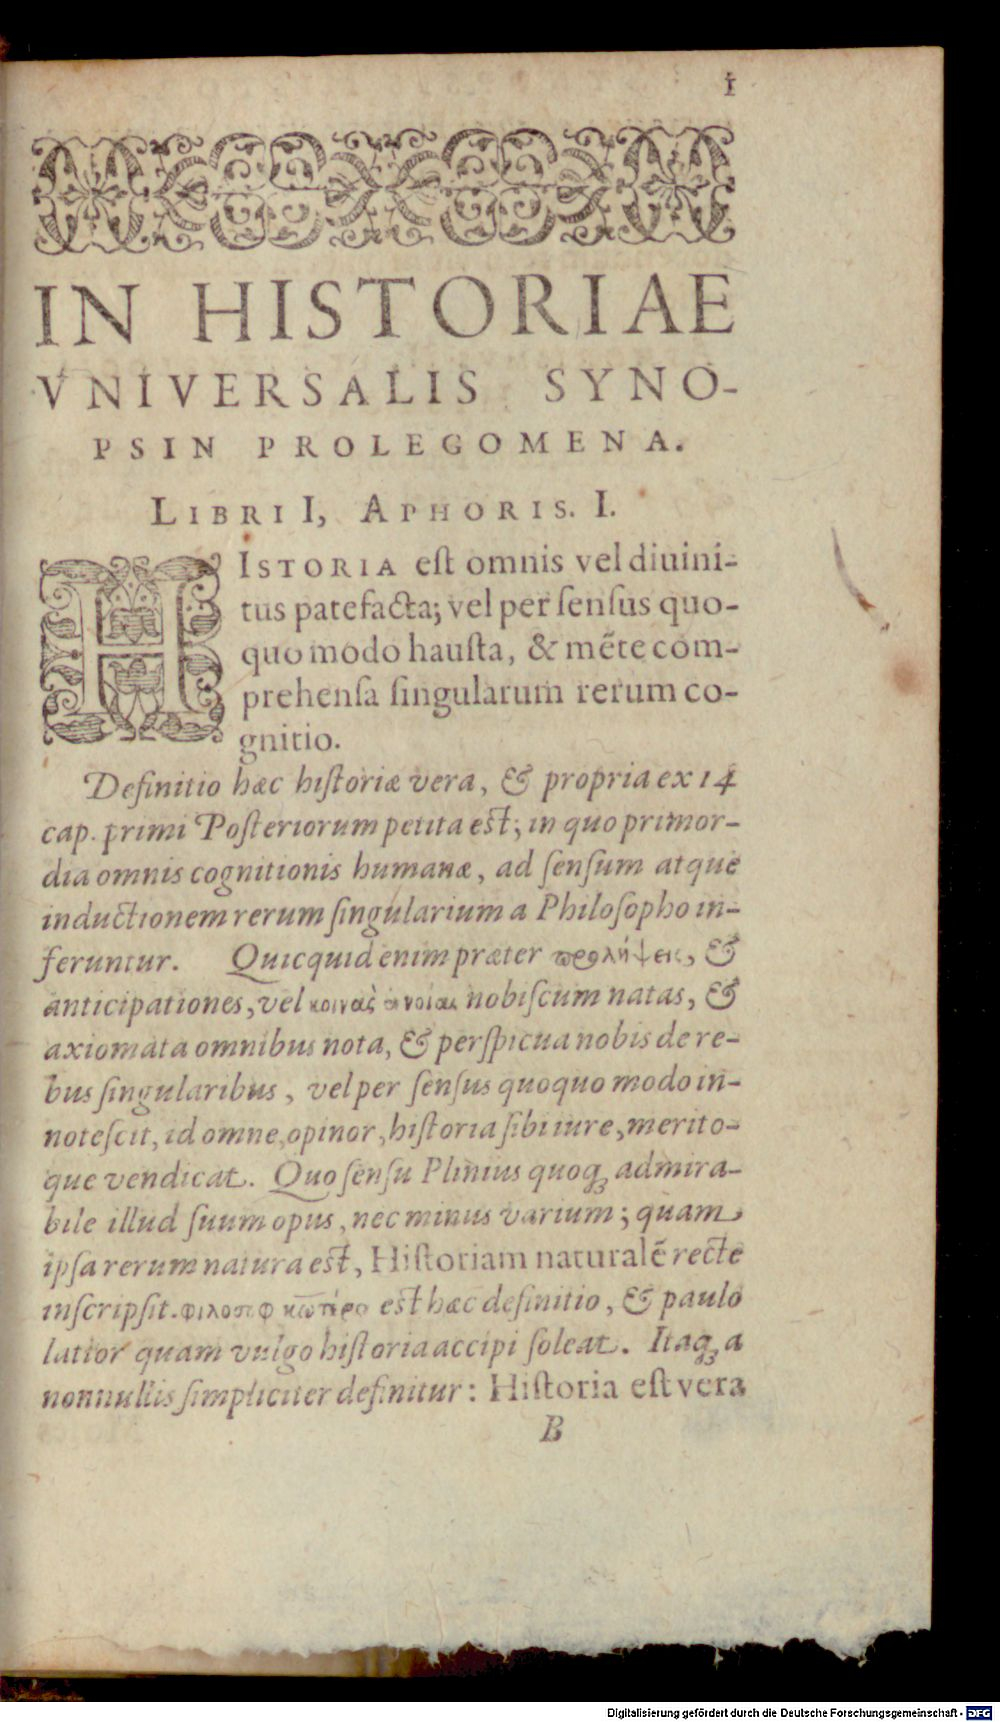 1
IN HISTORIAE
VNIVERSALIS SYNO-
PSIN PROLEGOMENA.
LIBRI I, APHORIS. I.
HISTORIA est omnis vel diuini-
tus patefacta; vel per sensus quo-
quo modo hausta, & mẽte com-
prehensa singularum rerum co-
gnitio.
Definitio hæc historiæ vera, & propria ex 14
cap. primi Posteriorum petita est; in quo primor-
dia omnis cognitionis humanæ, ad sensum atque
inductionem rerum singularium a Philosopho in-
feruntur. Quicquid enim præter προλήψεις, &
anticipationes, vel κοινὰς ἐννοίας nobiscum natas, &
axiomata omnibus nota, & perspicua nobis de re-
bus singularibus, vel per sensus quoquo modo in-
notescit, id omne, opinor, historia sibi iure, merito-
que vendicat. Quo sensu Plinius quoq; admira-
bile illud suum opus, nec minus varium; quam
ipsa rerum natura est, Historiam naturalẽ recte
inscripsit. est hæc definitio, & paulo
latior quam vulgo historia accipi soleat. Itaq; a
nonnullis simpliciter definitur: Historia est vera
B
Digitalisierung gefördert durch die Deutsche Forschungsgemeinschaft - DFG